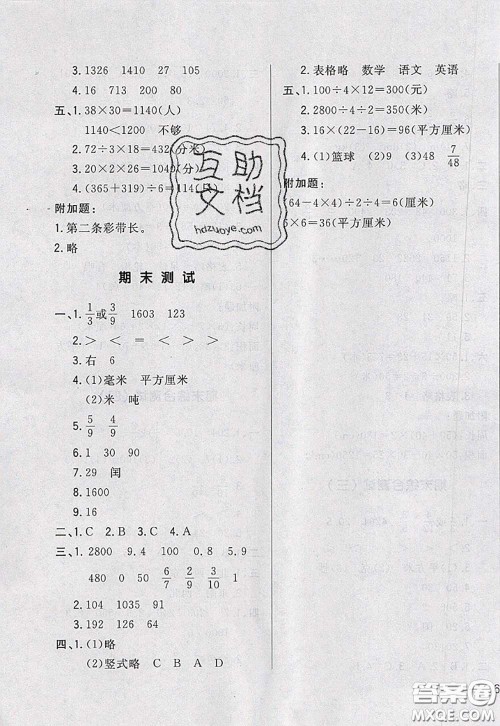 3.1326 1410 27 108
4.16 713 200 80
五、1.38×30=1140(人)
1140<1200 不够
2.72÷3×18=432(分米)
3.20×2×26=1040(分米)
4.(365+319)÷6=114(元)
附加题:
1.第二条彩带长。
2.略
期末测试
一、1.1/3或3/9 1603 123
2.> < = < < >
3.右 6
4.(1)毫米 平方厘米
(2)米 吨
5.5/9 4/9
7.29 闰
8.1600
9.16
二、1.C 2.B 3.C 4.A
三、1.2800 9.4 100 0.8 5.9
480 0 50 6/7 9/10 2/9
2.104 1035 91
3.192 126 64
四、1.(1)略
(2)竖式略 C B A D
2.表格略 数学 语文 英语
五、1.100÷4×12=300(元)
2.2800÷4÷2=350(元)
3.16×(22-16)=96(平方厘米)
4.(1)篮球 (2)9 (3)48 7/48
附加题:
(64-4×4)÷2÷4=6(厘米)
6×6=36(平方厘米)
互助
文档
hdzuoye.com
答案圈
MXQE.COM
6